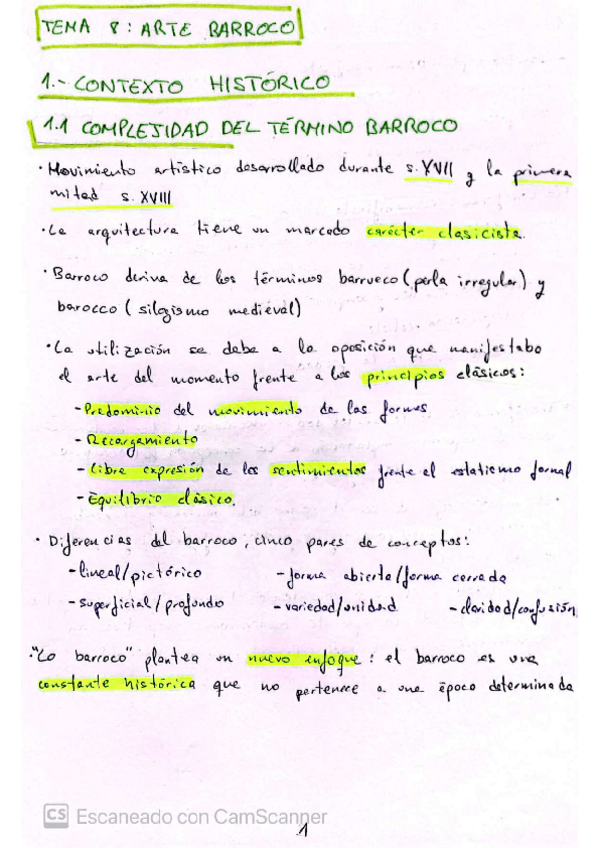 TEMA 8: ARTE BARROCO
1.- CONTEXTO HISTÓRICO
1.1 COMPLEJIDAD DEL TÉRMINO BARROCO
· Movimiento artístico desarrollado durante s. XVII y la primera
mitad s. XVIII
· La arquitectura tiene un marcado carácter clasicista.
· Barroco deriva de los términos barrueco (perla irregular) y
barocco (silogismo medieval)
· La utilización se debe a la oposición que manifestaba
el arte del momento frente a los principios clásicos:
- Predominio del movimiento de las formas
- Recargamiento
- Libre expresión de los sentimientos frente el estatismo formal
- Equilibrio clásico.
· Diferencias del barroco, cinco pares de conceptos:
- lineal/pictórico - forma abierta/forma cerrada
- superficial/profundo - variedad/unidad - claridad/confusión
· "Lo barroco" plantea un nuevo enfoque: el barroco es una
constante histórica que no pertenece a una época determinada
CS Escaneado con CamScanner
1